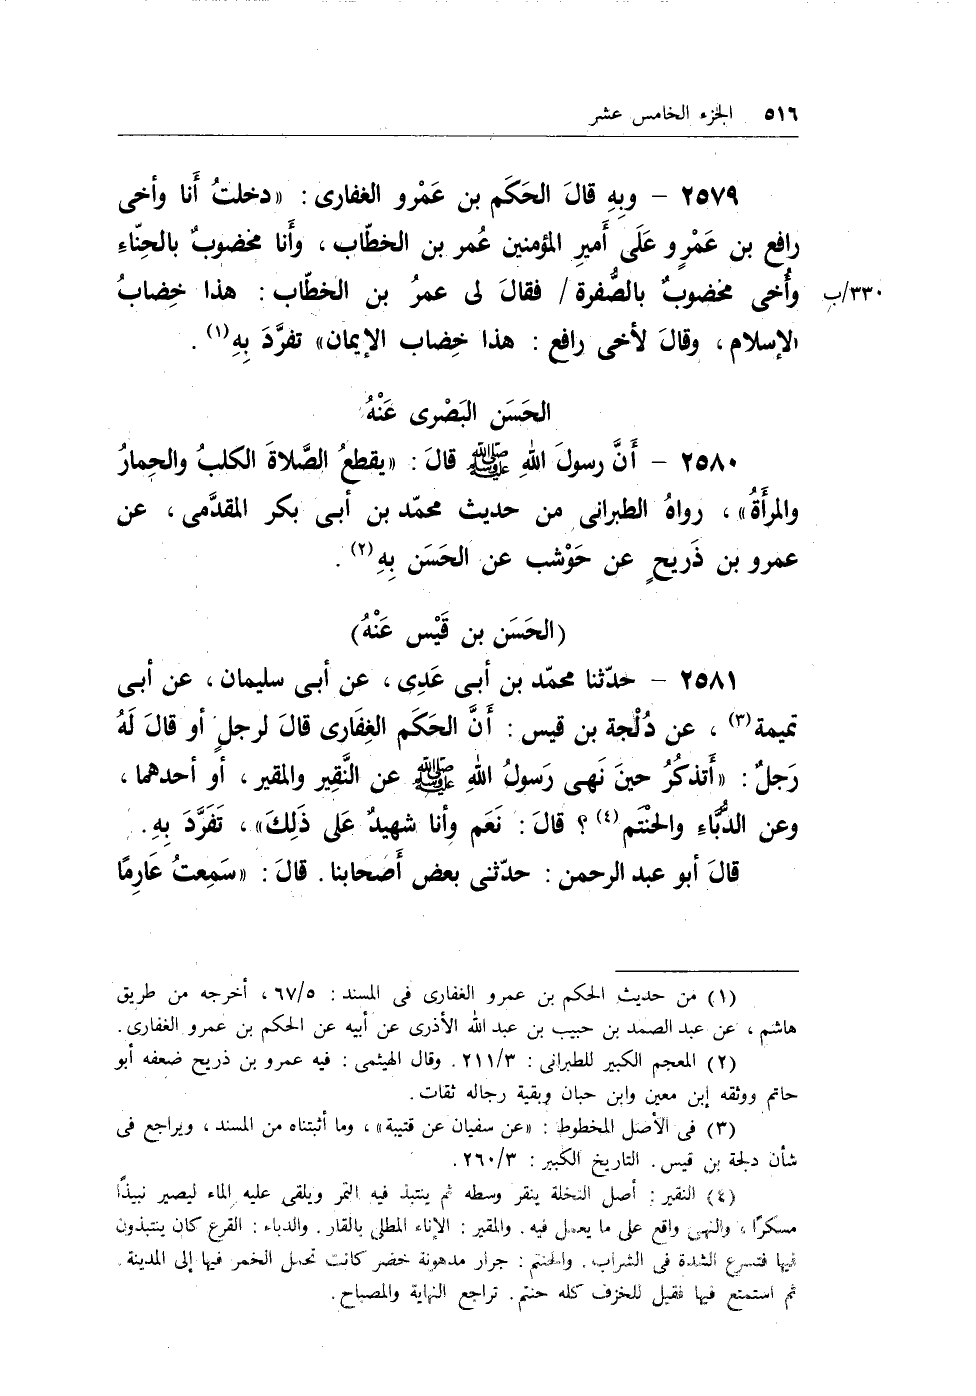 ٥١٦ الجزء الخامس عشر
٢٥٧٩ – وبِهِ قالَ الحَكَم بن عَمْرو الغفارى : «دخلتُ أَنا وأخى
رافع بن عَمْرٍو عَلَى أَميرِ المؤمنين عُمر بن الخطّاب ، وأَنا مخضوبٌ بالحِنّاءِ
وأُخى مخضوبٌ بالصُّفرة / فقالَ لى عمرُ بن الخطاب : هذا خِضابُ ٣٣٠/ب
الإسلام ، وقالَ لأخى رافع : هذا خِضاب الإيمان» تفرَّدَ بِهِ(١) .
الحَسَن البَصْرى عَنْهُ
٢٥٨٠ – أَنَّ رسولَ اللهِ ﷺ قالَ : «يقطعُ الصَّلاةَ الكلبُ والحِمارُ
والمرأَةُ» ، رواهُ الطبرانى من حديث محمّد بن أبى بكر المقدَّمى ، عن
عمرو بن ذَريحٍ عن حَوْشب عن الحَسَن بِهِ(٢) .
(الحَسَن بن قَيْس عَنْهُ)
٢٥٨١ – حدّثنا محمّد بن أبى عَدِى ، عن أبى سليمان ، عن أبى
تميمة(٣) ، عن دُلْجة بن قيس : أَنَّ الحَكَم الغِفَارى قالَ لرجلٍ أو قالَ لَهُ
رَجلٌ : «أَتذكُرُ حينَ نَهى رَسولُ اللهِ ﷺ عن النَّقِير والمقير ، أو أحدهما ،
وعن الدُّبَّاءِ والحنْتَم(٤) ؟ قالَ : نَعَم وأنا شهيدٌ عَلى ذَلِكَ» ، تَفَرَّدَ بِهِ .
قالَ أبو عبد الرحمن : حدّثنى بعض أَصَحابنا . قالَ : «سَمِعتُ عَارِمًا
(١) من حديث الحكم بن عمرو الغفارى فى المسند : ٦٧/٥ ، أخرجه من طريق
هاشم ، عن عبد الصمد بن حبيب بن عبد الله الأذرى عن أبيه عن الحكم بن عمرو الغفارى .
(٢) المعجم الكبير للطبرانى : ٢١١/٣ . وقال الهيثمى : فيه عمرو بن ذريح ضعفه أبو
حاتم ووثقه إبن معين وابن حبان وبقية رجاله ثقات .
(٣) فى الأصل المخطوط : «عن سفيان عن قتيبة» ، وما أثبتناه من المسند ، ويراجع فى
شأن دلجة بن قيس . التاريخ الكبير : ٢٦٠/٣ .
(٤) النقير : أصل النخلة ينقر وسطه ثم ينتبذ فيه التمر ويلقى عليه الماء ليصير نبيذًا
مسكرًا ، والنهى واقع على ما يعمل فيه . والمقير : الإناء المطلى بالقار . والدباء : القرع كان ينتبذون
فيها فتسرع الشدة فى الشراب . والحنتم : جرار مدهونة خضر كانت تحمل الخمر فيها إلى المدينة .
ثم استمتع فيها فقيل للخزف كله حنتم . تراجع النهاية والمصباح .